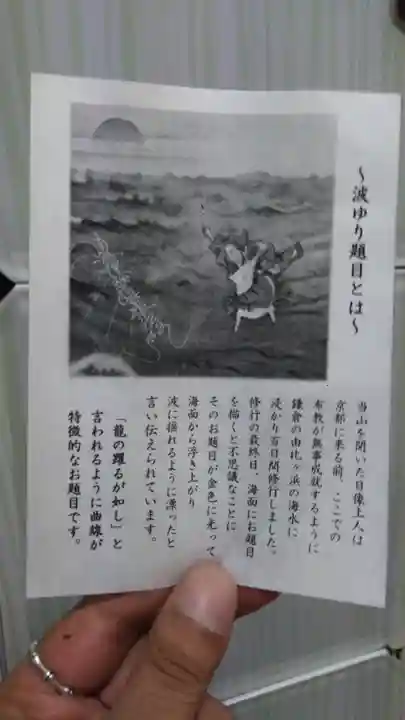 ～波ゆり題目とは～
当山を開いた日像上人は
京都に来る前、ここでの
布教が無事成就するように
鎌倉の由比ヶ浜の海水に
浸かり百日間修行しました。
修行の最終日、海面にお題目
を描くと不思議なことに
そのお題目が金色に光って
海面から浮き上がり
波に揺れるように漂ったと
言い伝えられています。
「龍の躍るが如し」と
言われるように曲線が
特徴的なお題目です。